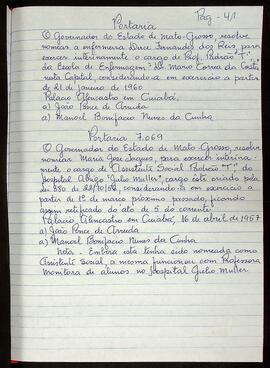 Pág - 41
Portaria
O Governador do Estado de Mato-Grosso, resolve
nomear a enfermeira Dirce Fernandes dos Reis, para
exercer interinamente o cargo de Prof. Padrão "T",
da Escola de Enfermagem "Dr. Mario Correa da Costa
nesta Capital, considerando-a em exercicio a partir
de 21 de janeiro de 1960
Palacio Alencastro em Cuiabá,
a) João Ponce de Arruda
a) Manoel Bonifacio Nunes da Cunha
Portaria 7.069
O Governador do Estado de Mato-Grosso, resolve
nomear Maria José Jaques, para exercer interina-
mente o cargo de Assistente Social Padrão "T", do
hospital Abrigo "Julio Muller", cargo este criado pela
Lei 880 de 22/10/56, considerando-a em exercicio a
partir de 1º de março próximo passado, ficando
assim retificado do ato de 5 do corrente.
Palacio, Alencastro em Cuiabá, 16 de abril de 1957
a) João Ponce de Arruda
a) Manoel Bonifacio Nunes da Cunha
Nota - Embora esta tenha sido nomeada como
Assistente Social, a mesma funcionou com Professora
Monitora de alunos no hospital Julio Muller